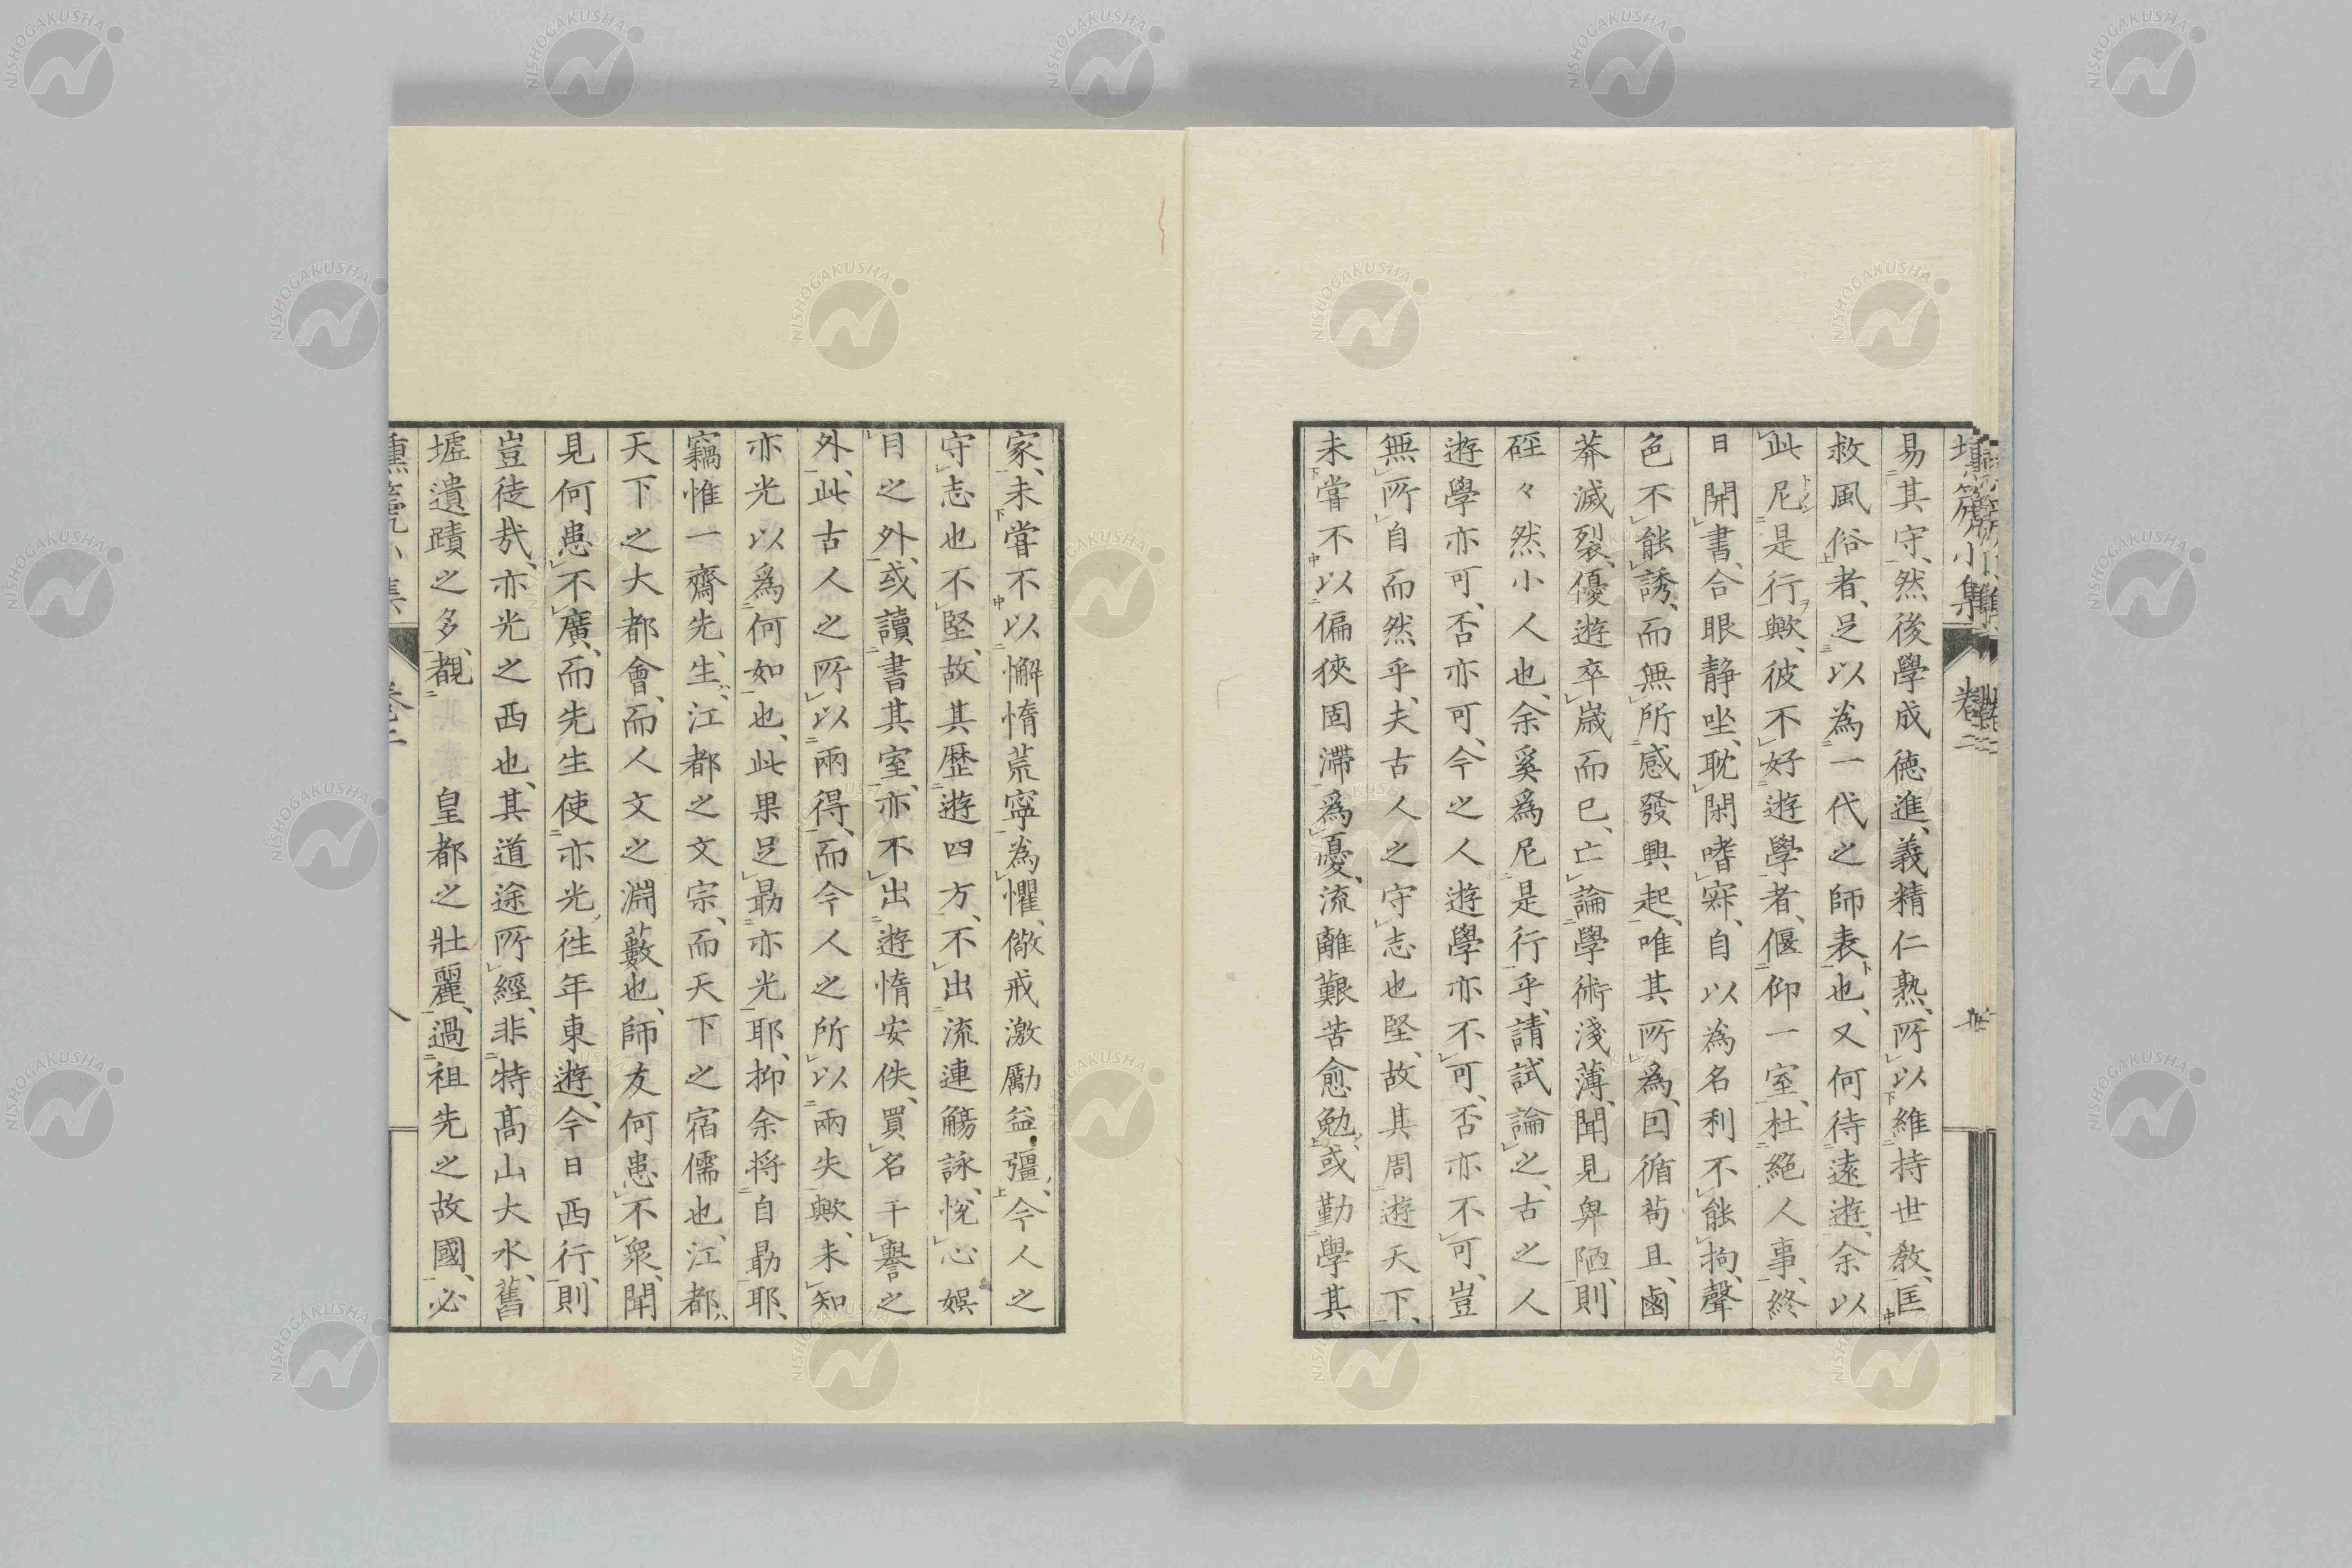 易其守、然後學成德進、義精仁熟、所以維持世教、匡
救風俗者、足以為一代之師表也、又何待遠遊、余以
此尼是行歟、彼不好遊學者、偃仰一室、杜絕人事、終
日開書、合眼靜坐、耽閑嗜寂、自以為名利不能拘、聲
色不能誘、而無所感發興起、唯其所為、因循苟且、鹵
莽滅裂、優遊卒歲而已、亡論學術淺薄、聞見卑陋、則
硜々然小人也、余奚為尼是行乎、請試論之、古之人
遊學亦可、否亦可、今之人遊學亦不可、否亦不可、豈
無所自而然乎、夫古人之守志也堅、故其周遊天下、
未嘗不以偏狹固滯為憂、流離艱苦愈勉、或勤學其
家、未嘗不以懈惰荒寧為懼、儆戒激勵益彊、今人之
守志也不堅、故其歷遊四方、不出流連觴詠、悅心娛
目之外、或讀書其室、亦不出遊惰安佚、買名干譽之
外、此古人之所以兩得、而今人之所以兩失歟、未知
亦光以為何如也、此果足勗亦光耶、抑余將自勗耶、
竊惟一齋先生、江都之文宗、而天下之宿儒也、江都、
天下之大都會、而人文之淵藪也、師友何患不衆、聞
見何患不廣、而先生使亦光往年東遊、今日西行、則
豈徒哉、亦光之西也、其道途所經、非特高山大水、舊
墟遺蹟之多、覩皇都之壯麗、過祖先之故國、必
塤篪小集
卷二
NISHOGAKUSHA